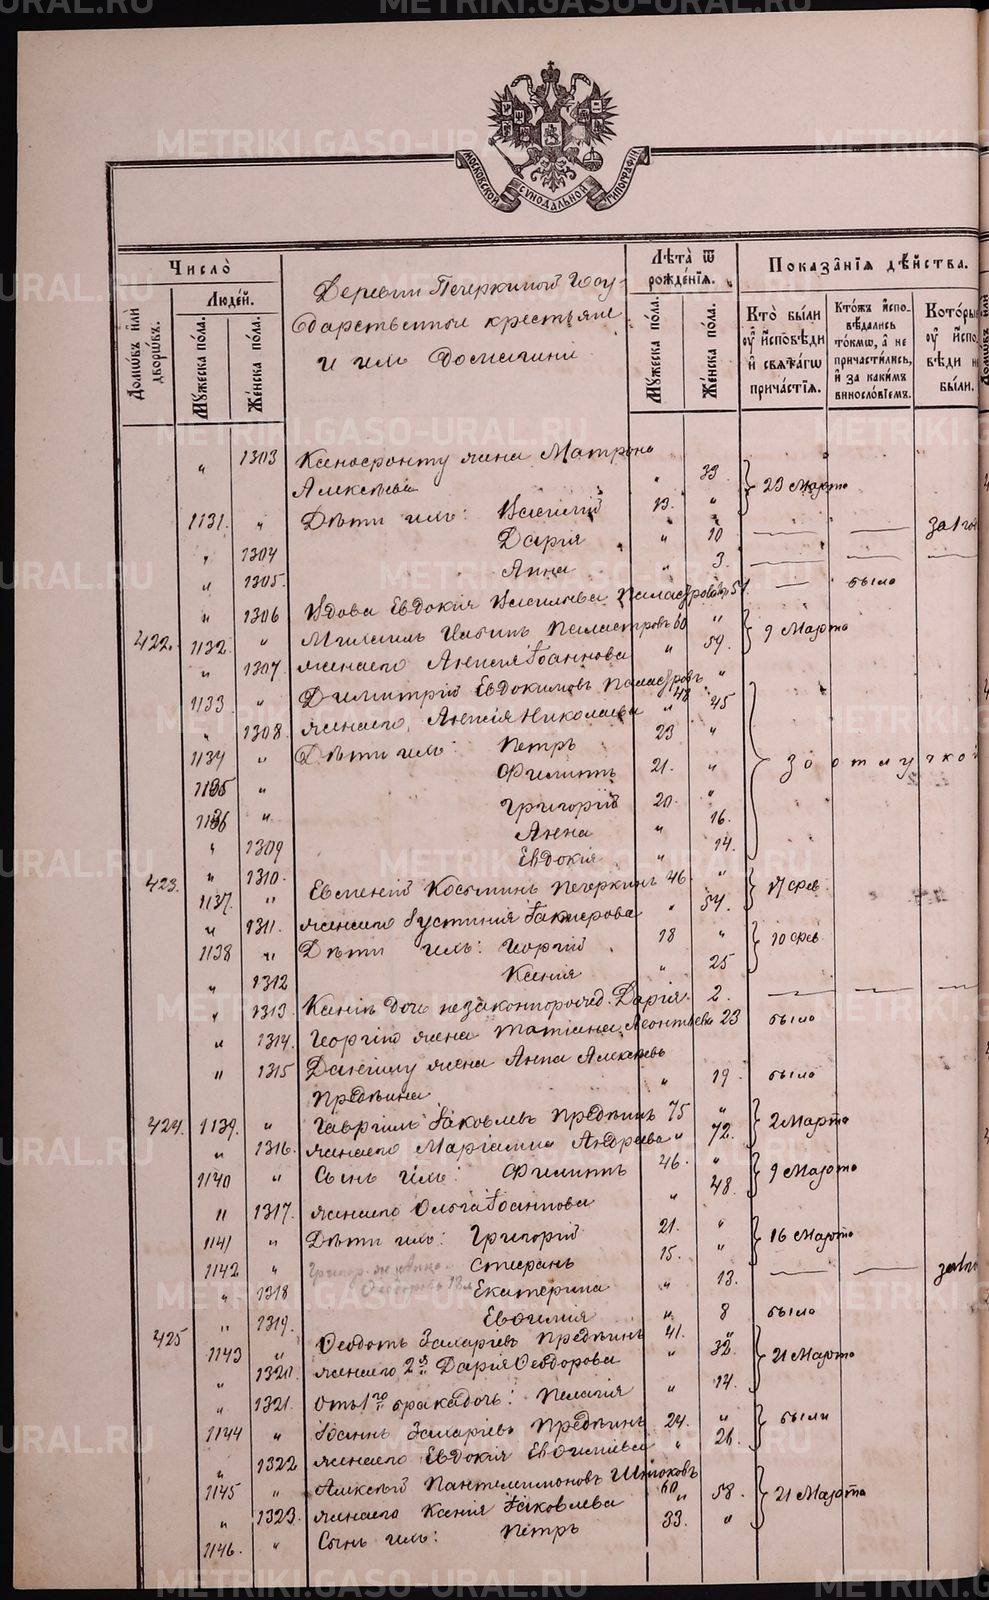 МОСКОВСКОЙ СѴНОДАЛЬНОЙ ТИПОГРАФІИ
Число̀
Люде́й.
Домѡ́въ и҆лѝ дворѡ́въ.
Мꙋ́жеска по́ла.
Же́нска по́ла.
Деревни Печеркиной Госу-
дарственные крестьяне
и их домашние
Лѣ́та ѿ рожде́нїѧ.
Мꙋ́жеска по́ла.
Же́нска по́ла.
Показа̑нїѧ дѣ́йства.
Кто̀ бы́ли ᲂу҆ и҆́сповѣди и҆ свѧта́гѡ прича́стїѧ.
Кто́жъ и҆спо-вѣ́дались то́кмѡ, а҆ не причасти́лись, и҆ за каки́мъ винословїемъ.
Кото́рые ᲂу҆ и҆́спо-вѣди не бы́ли.
" 1303 Ксенофонту жена Матрона
Алексѣева " 33 23 Марта
1131. " Дѣти ихъ: Василій 13. "
" 1304 Дарія " 10
" 1305. Анна " 3.
" 1306 Вдова Евдокія Васильева 51. было
422. 1132. " Исаковъ 60 " 9 Марта
" 1307 жена его Анисія Іоаннова " 59.
1133 " Димитрій Евдокимовъ 48 "
" 1308. жена его, Анисія Николаева " 45
1134 " Дѣти ихъ: Петръ 23 " за отлучкой
1135 " Филиппъ 21. "
1136 " Григорій 20. "
" 1309 Анна " 16.
" 1310. Евдокія " 14.
423. 1137. " Евгеній Косьминъ Печеркинъ 46 " 17 фев
" 1311. жена его Іустинія " 54.
1138 " Дѣти ихъ: Георгій 18 " 10 фев.
" 1312 Ксенія " 25
" 1313. Ксеніи дочь незаконнорожд. Дарія. 2.
" 1314. Георгію жена Татіана Леонтьева 23 было
" 1315 Даніилу жена Анна Алексѣева
Предѣина " 19 было
424. 1139. " Гавріилъ Іаковлевъ Предѣинъ 75 " 2 Марта
" 1316. жена его Маріамна Андреева " 72.
1140 " Сынъ ихъ: Филиппъ 46. " 9 Марта
" 1317. жена его Ольга Іоаннова " 48.
1141 " Дѣти ихъ: Григорій 21. " 16 Марта
1142 " Стефанъ 15. "
" 1318 Екатерина " 13.
" 1319. Евѳимія " 8 было
425 1143 " Ѳеодотъ Захаріевъ Предѣинъ 41. " 21 Марта
" 1320. жена его 2я Дарія Ѳеодорова " 32.
" 1321. Отъ 1го брака дочь: Пелагія " 14.
1144 " Іоаннъ Захаріевъ Предѣинъ 24. " были
" 1322 жена его Евдокія Евѳиміева " 26.
1145 " Алексѣй Пантелеимоновъ 60 " 21 Марта
" 1323. жена его Ксенія Іаковлева " 58.
1146. " Сынъ ихъ: Петръ 33. "
METRIKI.GASO-URAL.RU